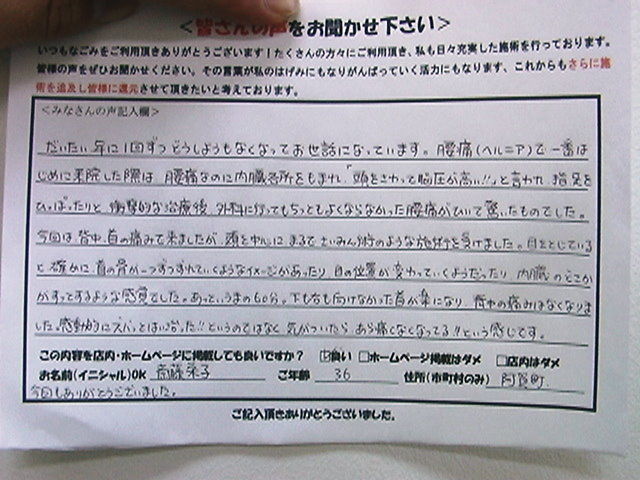 <皆さんの声をお聞かせ下さい>
いつもなごみをご利用頂きありがとうございます！たくさんの方々にご利用頂き、私も日々充実した施術を行っております。
皆様の声をぜひお聞かせください。その言葉が私のはげみにもなりがんばっていく活力にもなります、これからもさらに施
術を追及し皆様に還元させて頂きたいと考えております。
<みなさんの声記入欄>
だいたい年に1回ずつどうしようもなくなってお世話になっています。腰痛(ヘルニア)で一番は
じめに来院した際は、腰痛なのに内臓各所をもまれ、「頭をさわって脳圧が高い!!」と言われ、指足を
ひっぱったりと、衝撃的な治療後、外科に行ってもちっともよくならなかった腰痛がひいて驚いたものでした。
今回は背中、首の痛みで来ましたが、頭を中心にまるでさいみん術のような施術を受けました。目をとじている
と確かに首の骨が一つずつずれていくようなイメージがあったり、目の位置が変わっていくようだったり、内臓のどこか
がすってするような感覚でした。あっというまの60分。下も右も向けなかった首が楽になり、背中の痛みはなくなりま
した。感動的にスパッとはい治った!!というのではなく、気がついたら あら痛くなくなってる!!という感じです。
この内容を店内・ホームページに掲載しても良いですか？ 良い □ホームページ掲載はダメ □店内はダメ
お名前(イニシャル)OK 斎藤 子 ご年齢 36 住所(市町村のみ) 阿賀町
今回もありがとうございました。
ご記入頂きありがとうございました。